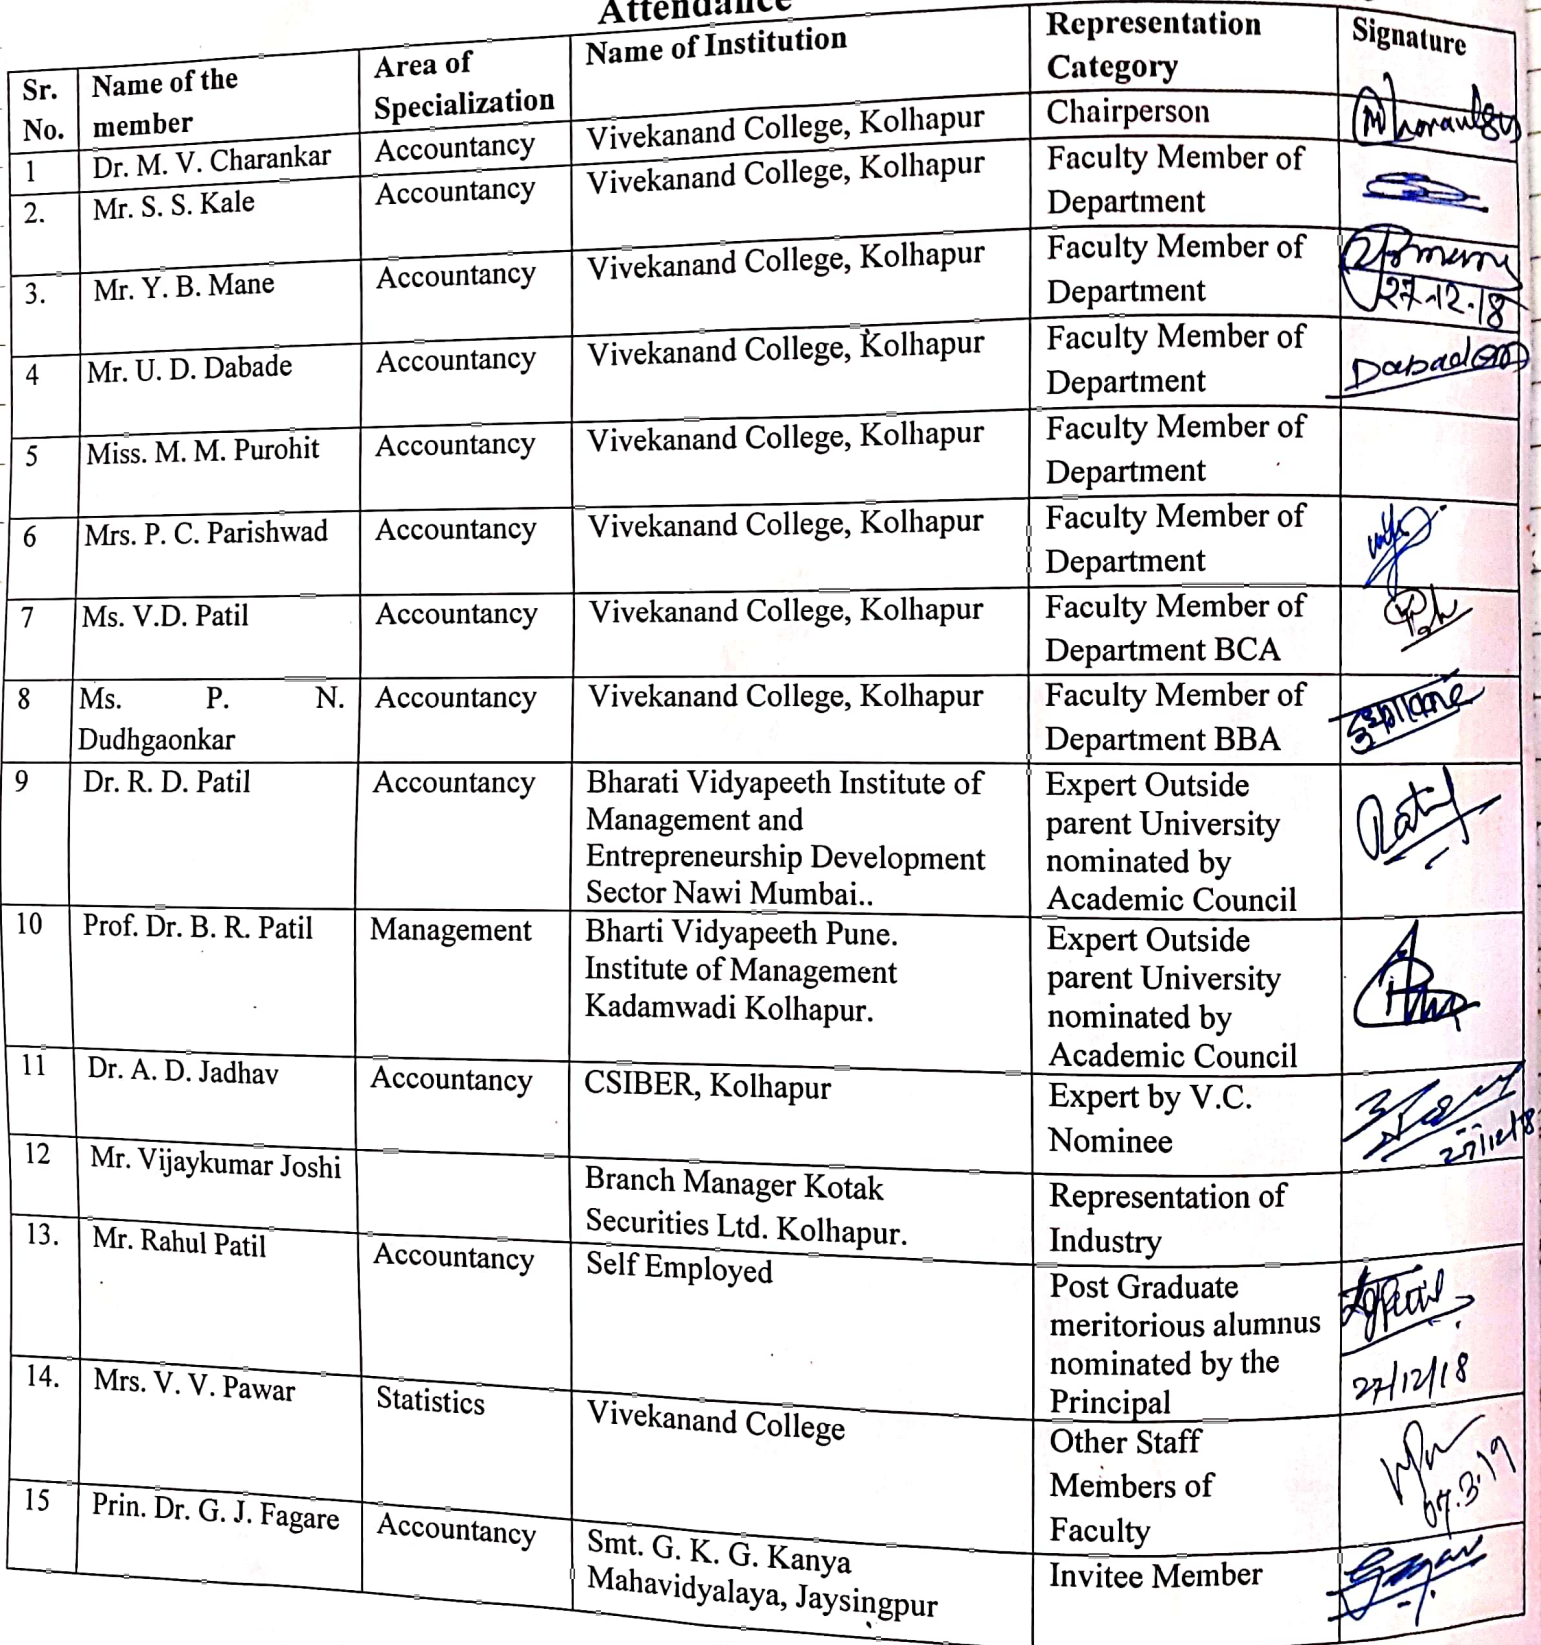 Attendance
Sr. No. Name of the member Area of Specialization Name of Institution Representation Category Signature
1 Dr. M. V. Charankar Accountancy Vivekanand College, Kolhapur Chairperson
2. Mr. S. S. Kale Accountancy Vivekanand College, Kolhapur Faculty Member of
Department
3. Mr. Y. B. Mane Accountancy Vivekanand College, Kolhapur Faculty Member of
Department 27-12-18
4 Mr. U. D. Dabade Accountancy Vivekanand College, Kolhapur Faculty Member of
Department
5 Miss. M. M. Purohit Accountancy Vivekanand College, Kolhapur Faculty Member of
Department
6 Mrs. P. C. Parishwad Accountancy Vivekanand College, Kolhapur Faculty Member of
Department
7 Ms. V.D. Patil Accountancy Vivekanand College, Kolhapur Faculty Member of
Department BCA
8 Ms. P. N. Accountancy Vivekanand College, Kolhapur Faculty Member of
Dudhgaonkar Department BBA
9 Dr. R. D. Patil Accountancy Bharati Vidyapeeth Institute of Expert Outside
Management and parent University
Entrepreneurship Development nominated by
Sector Nawi Mumbai.. Academic Council
10 Prof. Dr. B. R. Patil Management Bharti Vidyapeeth Pune. Expert Outside
Institute of Management parent University
Kadamwadi Kolhapur. nominated by
Academic Council
11 Dr. A. D. Jadhav Accountancy CSIBER, Kolhapur Expert by V.C.
Nominee 27/12/18
12 Mr. Vijaykumar Joshi Branch Manager Kotak Representation of
Securities Ltd. Kolhapur. Industry
13. Mr. Rahul Patil Accountancy Self Employed Post Graduate
meritorious alumnus
nominated by the
Principal 27/12/18
14. Mrs. V. V. Pawar Statistics Vivekanand College Other Staff
Members of
Faculty 07.3.19
15 Prin. Dr. G. J. Fagare Accountancy Smt. G. K. G. Kanya Invitee Member
Mahavidyalaya, Jaysingpur